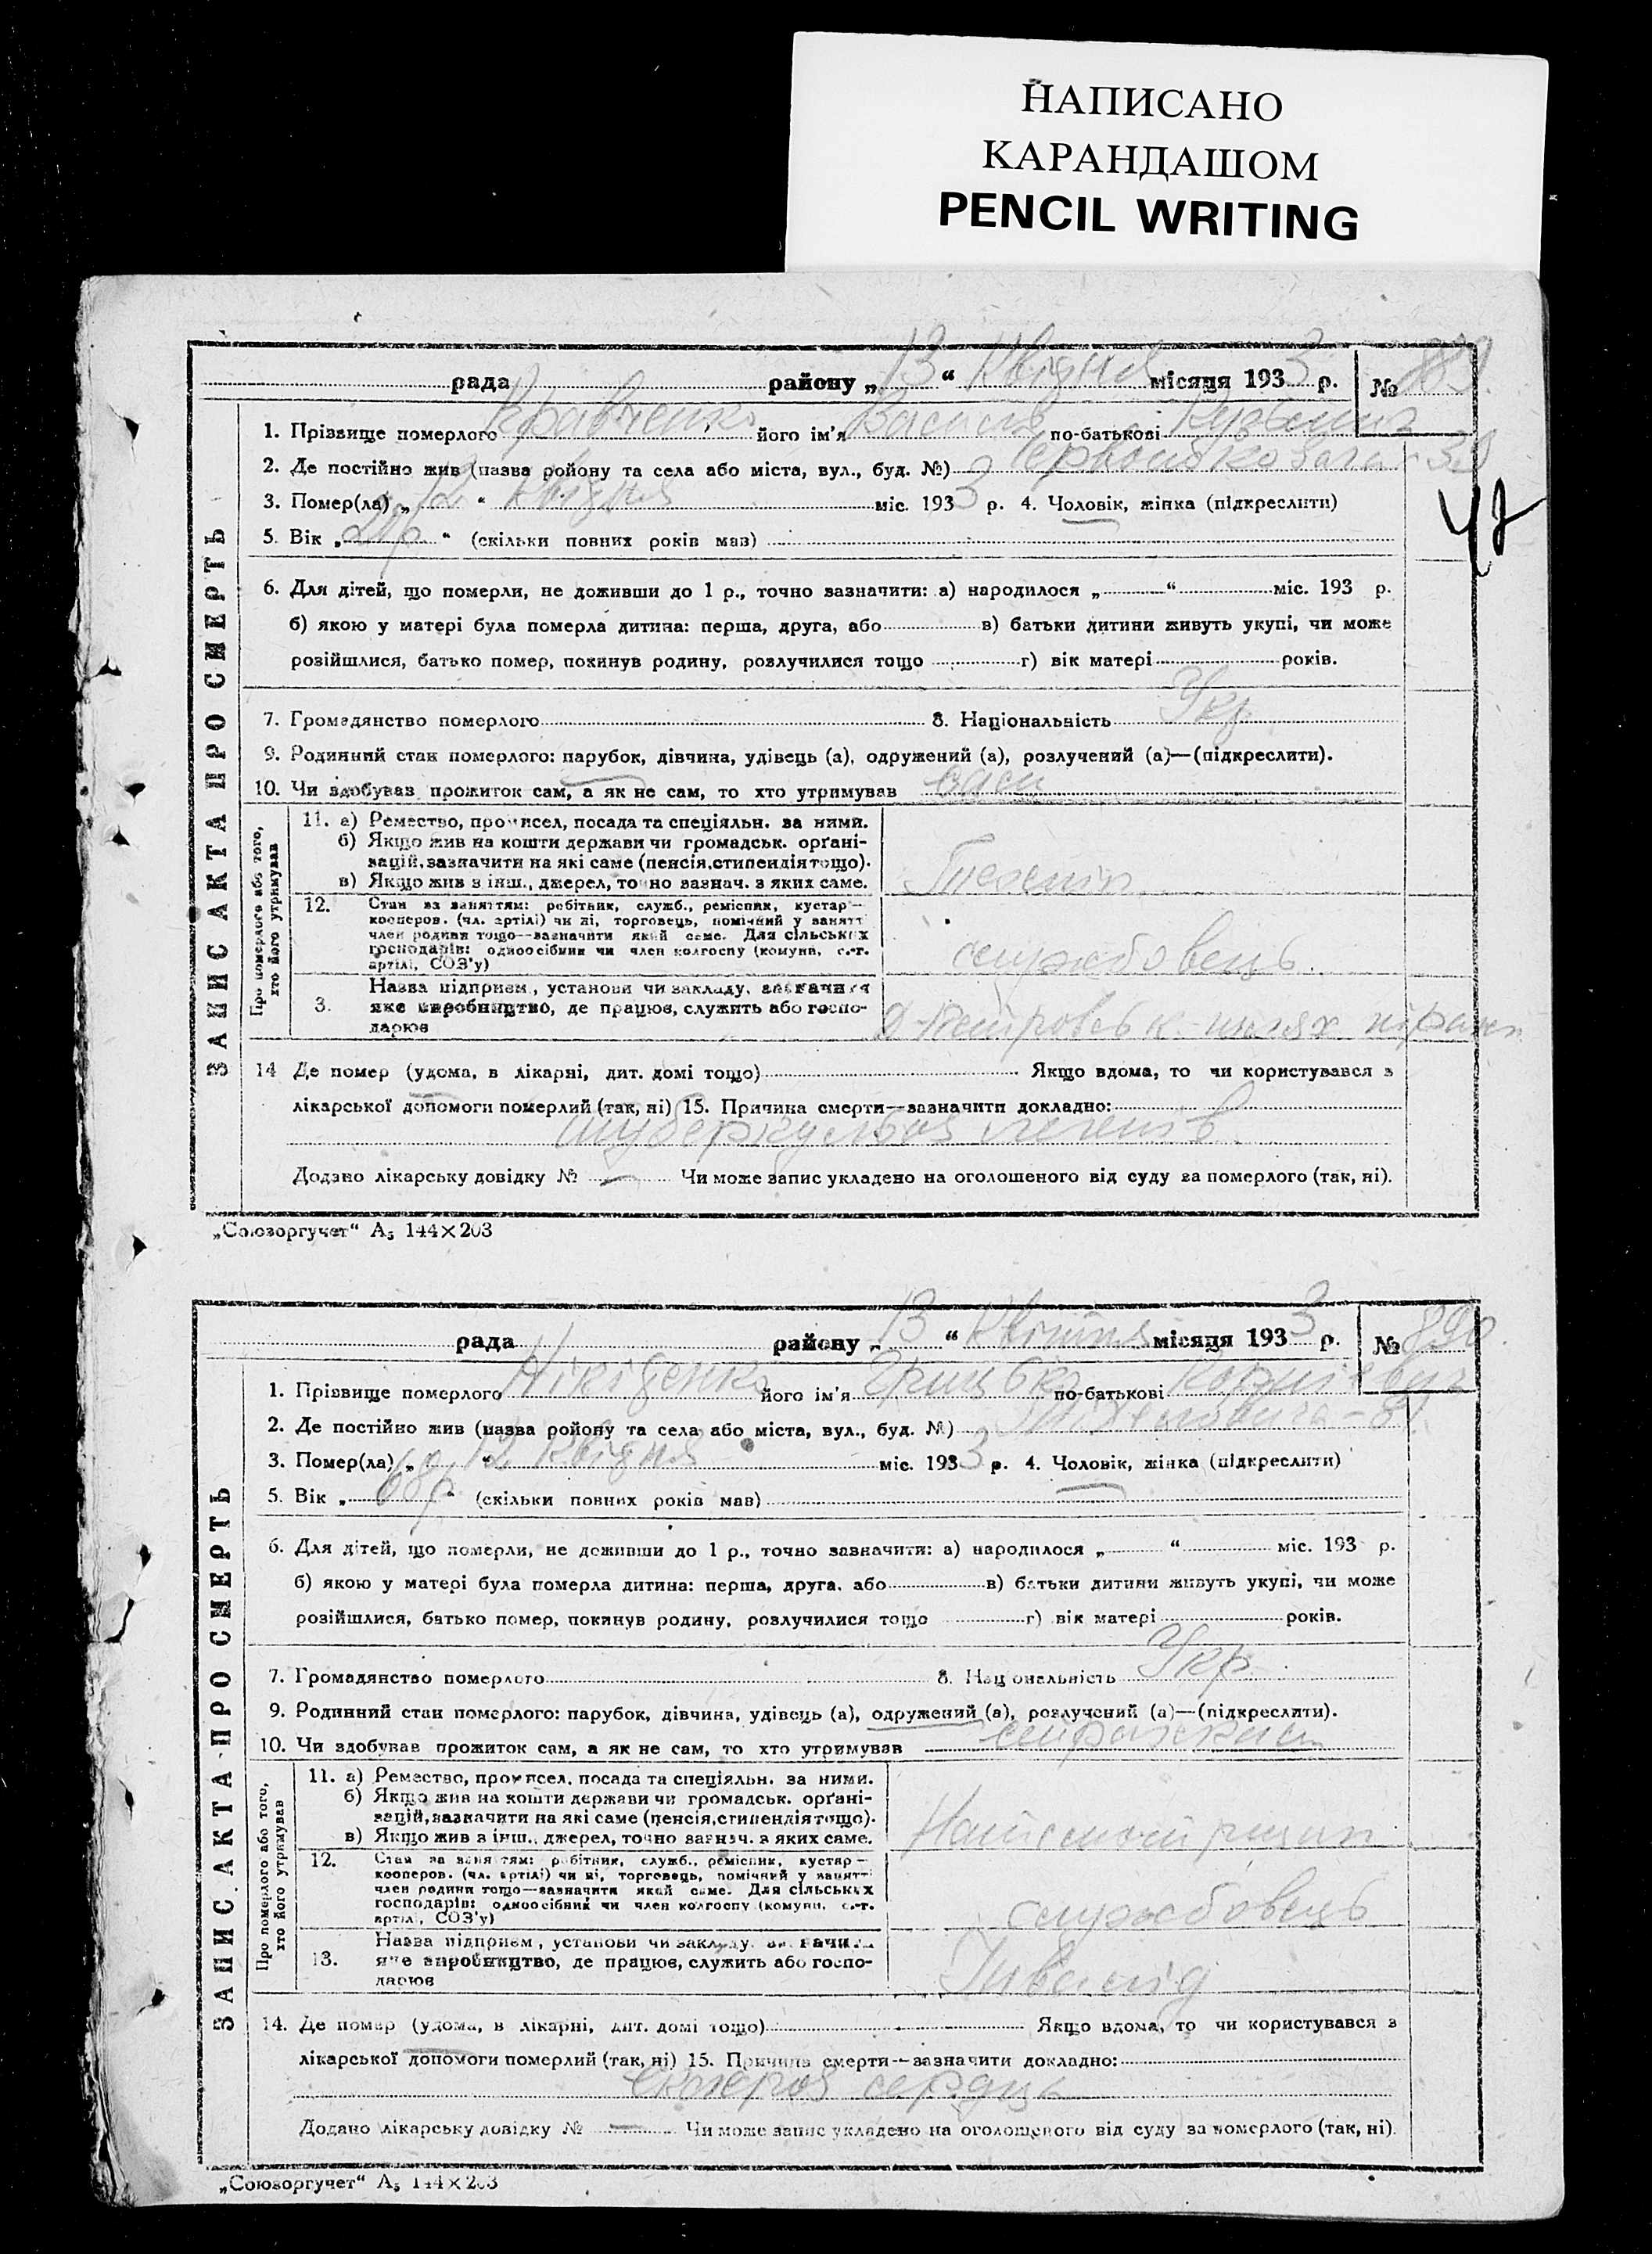 НАПИСАНО
КАРАНДАШОМ
PENCIL WRITING
рада району „13“ Квітня місяця 1933 р. № 889.
1. Прізвище померлого Кравченко його ім'я Василь по-батькові Кузьмич
2. Де постійно жив (назваройону та села або міста, вул., буд. №) Червонокозача-
3. Помер(ла) „12“ квітня міс. 1933 р. 4. Чоловік, жінка (підкреслити)
47
5. Вік „ “ (скільки повних років мав)
6. Для дітей, що померли, не доживши до 1 р., точно зазначити: а) народилося „ “ міс. 193 р.
б) якою у матері була померла дитина: перша, друга, або в) батьки дитини живуть укупі, чи може
розійшлися, батько помер, покинув родину, розлучилися тощо г) вік матері років.
7. Громадянство померлого 8. Національність Укр
9. Родинний стан померлого: парубок, дівчина, удівець (а), одружений (а), розлучений (а)—(підкреслити).
10. Чи здобував прожиток сам, а як не сам, то хто утримував сам
ЗАПИС АКТА ПРО СМЕРТЬ
Про померлого або того, хто його утримував
11. а) Ремество, промисел, посада та спеціяльн. за ними.
б) Якщо жив на кошти держави чи громадськ. орґані-
зацій, зазначити на які саме (пенсія, стипендія тощо).
в) Якщо жив з інш., джерел, точно зазнач. з яких саме.
12. Стан за заняттям: робітник, служб., ремісник, кустар—
кооперов. (чл. артілі) чи ні, торговець, помічний у занятт
член родини тощо—зазначити який саме. Для сільських
господарів: одноосібник чи член колгоспу (комуни, с.-г.
артілі, СОЗ'у)
службовець.
Назва підприєм., установи чи закладу, зазначити
3. яке виробництво, де працює, служить або госпо-
дарює
14 Де помер (удома, в лікарні, дит. домі тощо) Якщо вдома, то чи користувався з
лікарської допомоги померлий (так, ні) 15. Причина смерти—зазначити докладно:
туберкульоз легенів.
Додано лікарську довідку № — Чи може запис укладено на оголошеного від суду за померлого (так, ні).
„Союзоргучет“ А₅ 144×203
рада району „13“ Квітня місяця 1933 р. № 890.
1. Прізвище померлого Нікіденко його ім'я Грицько по-батькові Корнієвич
2. Де постійно жив (назва ройону та села або міста, вул., буд. №)
3. Помер(ла) „12“ квітня міс. 1933 р. 4. Чоловік, жінка (підкреслити)
5. Вік „68р“ (скільки повних років мав)
6. Для дітей, що померли, не доживши до 1 р., точно зазначити: а) народилося „ “ міс. 193 р.
б) якою у матері була померла дитина: перша, друга, або в) батьки дитини живуть укупі, чи може
розійшлися, батько помер, покинув родину, розлучилися тощо г) вік матері років.
7. Громадянство померлого 8. Національність Укр
9. Родинний стан померлого: парубок, дівчина, удівець (а), одружений (а), розлучений (а)—(підкреслити).
10. Чи здобував прожиток сам, а як не сам, то хто утримував
ЗАПИС АКТА ПРО СМЕРТЬ
Про померлого або того, хто його утримував
11. а) Ремество, промисел, посада та спеціяльн. за ними.
б) Якщо жив на кошти держави чи громадськ. орґані-
зацій, зазначити на які саме (пенсія, стипендія тощо).
в) Якщо жив з інш., джерел, точно зазнач. з яких саме.
12. Стан за заняттям: робітник, служб., ремісник, кустар—
кооперов. (чл. артілі) чи ні, торговець, помічний у занятті
член родини тощо—зазначити який саме. Для сільських
господарів: одноосібник чи член колгоспу (комуни, с.-г.
артілі, СОЗ'у)
службовець
Назва підприєм., установи чи закладу, зазначити
13. яке виробництво, де працює, служить або госпо-
дарює
Інвалід
14. Де помер (удома, в лікарні, дит. домі тощо) Якщо вдома, то чи користувався з
лікарської допомоги померлий (так, ні) 15. Причина смерти—зазначити докладно:
склероз серця
Додано лікарську довідку № — Чи може запис укладено на оголошеного від суду за померлого (так, ні).
„Союзоргучет“ А₅ 144×203